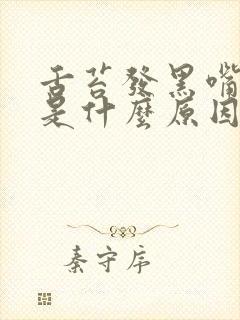 舌苔發黑嘴
是什麼原因
秦守序